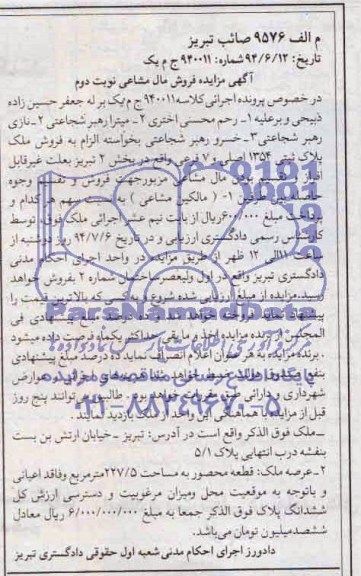 م الف ۹۵۷۶ صائب تبریز
تاریخ: ۹۴/۶/۱۲ شماره: ۹۴۰۰۱۱ ج م یک
آگهی مزایده فروش مال مشاعی نوبت دوم
در خصوص پرونده اجرائی کلاسه ۹۴۰۰۱۱ ج م یک بر له جعفر حسین زاده
ذبیحی و بر علیه ۱- رحم محسنی اختری ۲- میترا رهبر شجاعتی ۲- نازی
رهبر شجاعتی ۳- خسرو رهبر شجاعتی بخواسته الزام به فروش ملک
پلاک ثبتی ۱۳۵۴ اصلی و ۷ فرعی واقع در بخش ۲ تبریز بعلت غیرقابل
مال مشاعی مزبور جهت فروش و تقسیم وجوه
طرفین ۱- ( مالکین مشاعی ) به نسبت سهم هر کدام و
پرداخت مبلغ ۶۰۰/۰۰۰ ریال از بابت نیم عشر اجرائی ملک فوق، توسط
کارشناس رسمی دادگستری ارزیابی و در تاریخ ۹۴/۷/۶ روز دوشنبه از
ساعت ۱۱ الی ۱۲ ظهر از طریق مزایده در واحد اجرای احکام مدنی
دادگستری تبریز واقع در اول ولیعصر ساختمان شماره ۲ بفروش خواهد
رسید. مزایده از مبلغ ارزیابی شده شروع و به کسی که بالاترین قیمت را
پیشنهادی فی
المجلس از برنده مزایده اخذ و مابقی حداکثر یکماه
، برنده مزایده به هر عنوان اعلام انصراف نماید ۱۰ درصد مبلغ پیشنهادی
بنفع
شهرداری و دارائی خواهد بود. طالبین می توانند پنج روز
قبل از مزایده با هماهنگی این واحد از ملک بازدید نمایند.
-ملک فوق الذکر واقع است در آدرس: تبریز -خیابان ارتش بن بست
بنفشه درب انتهایی پلاک ۵/۱
۲-عرصه ملک: قطعه محصور به مساحت ۲۲۷/۵ مترمربع وفاقد اعیانی
و باتوجه به موقعیت محل ومیزان مرغوبیت و دسترسی ارزش کل
ششدانگ پلاک فوق الذکر جمعا به مبلغ ۶/۰۰۰/۰۰۰/۰۰۰ ریال معادل
ششصدمیلیون تومان می‌باشد.
دادورز اجرای احکام مدنی شعبه اول حقوقی دادگستری تبریز
ParsNamadData
پایگاه اطلاع رسانی مناقصه و مزایده
۰۲۱-۸۸۳۴۹۶۷۰-۵